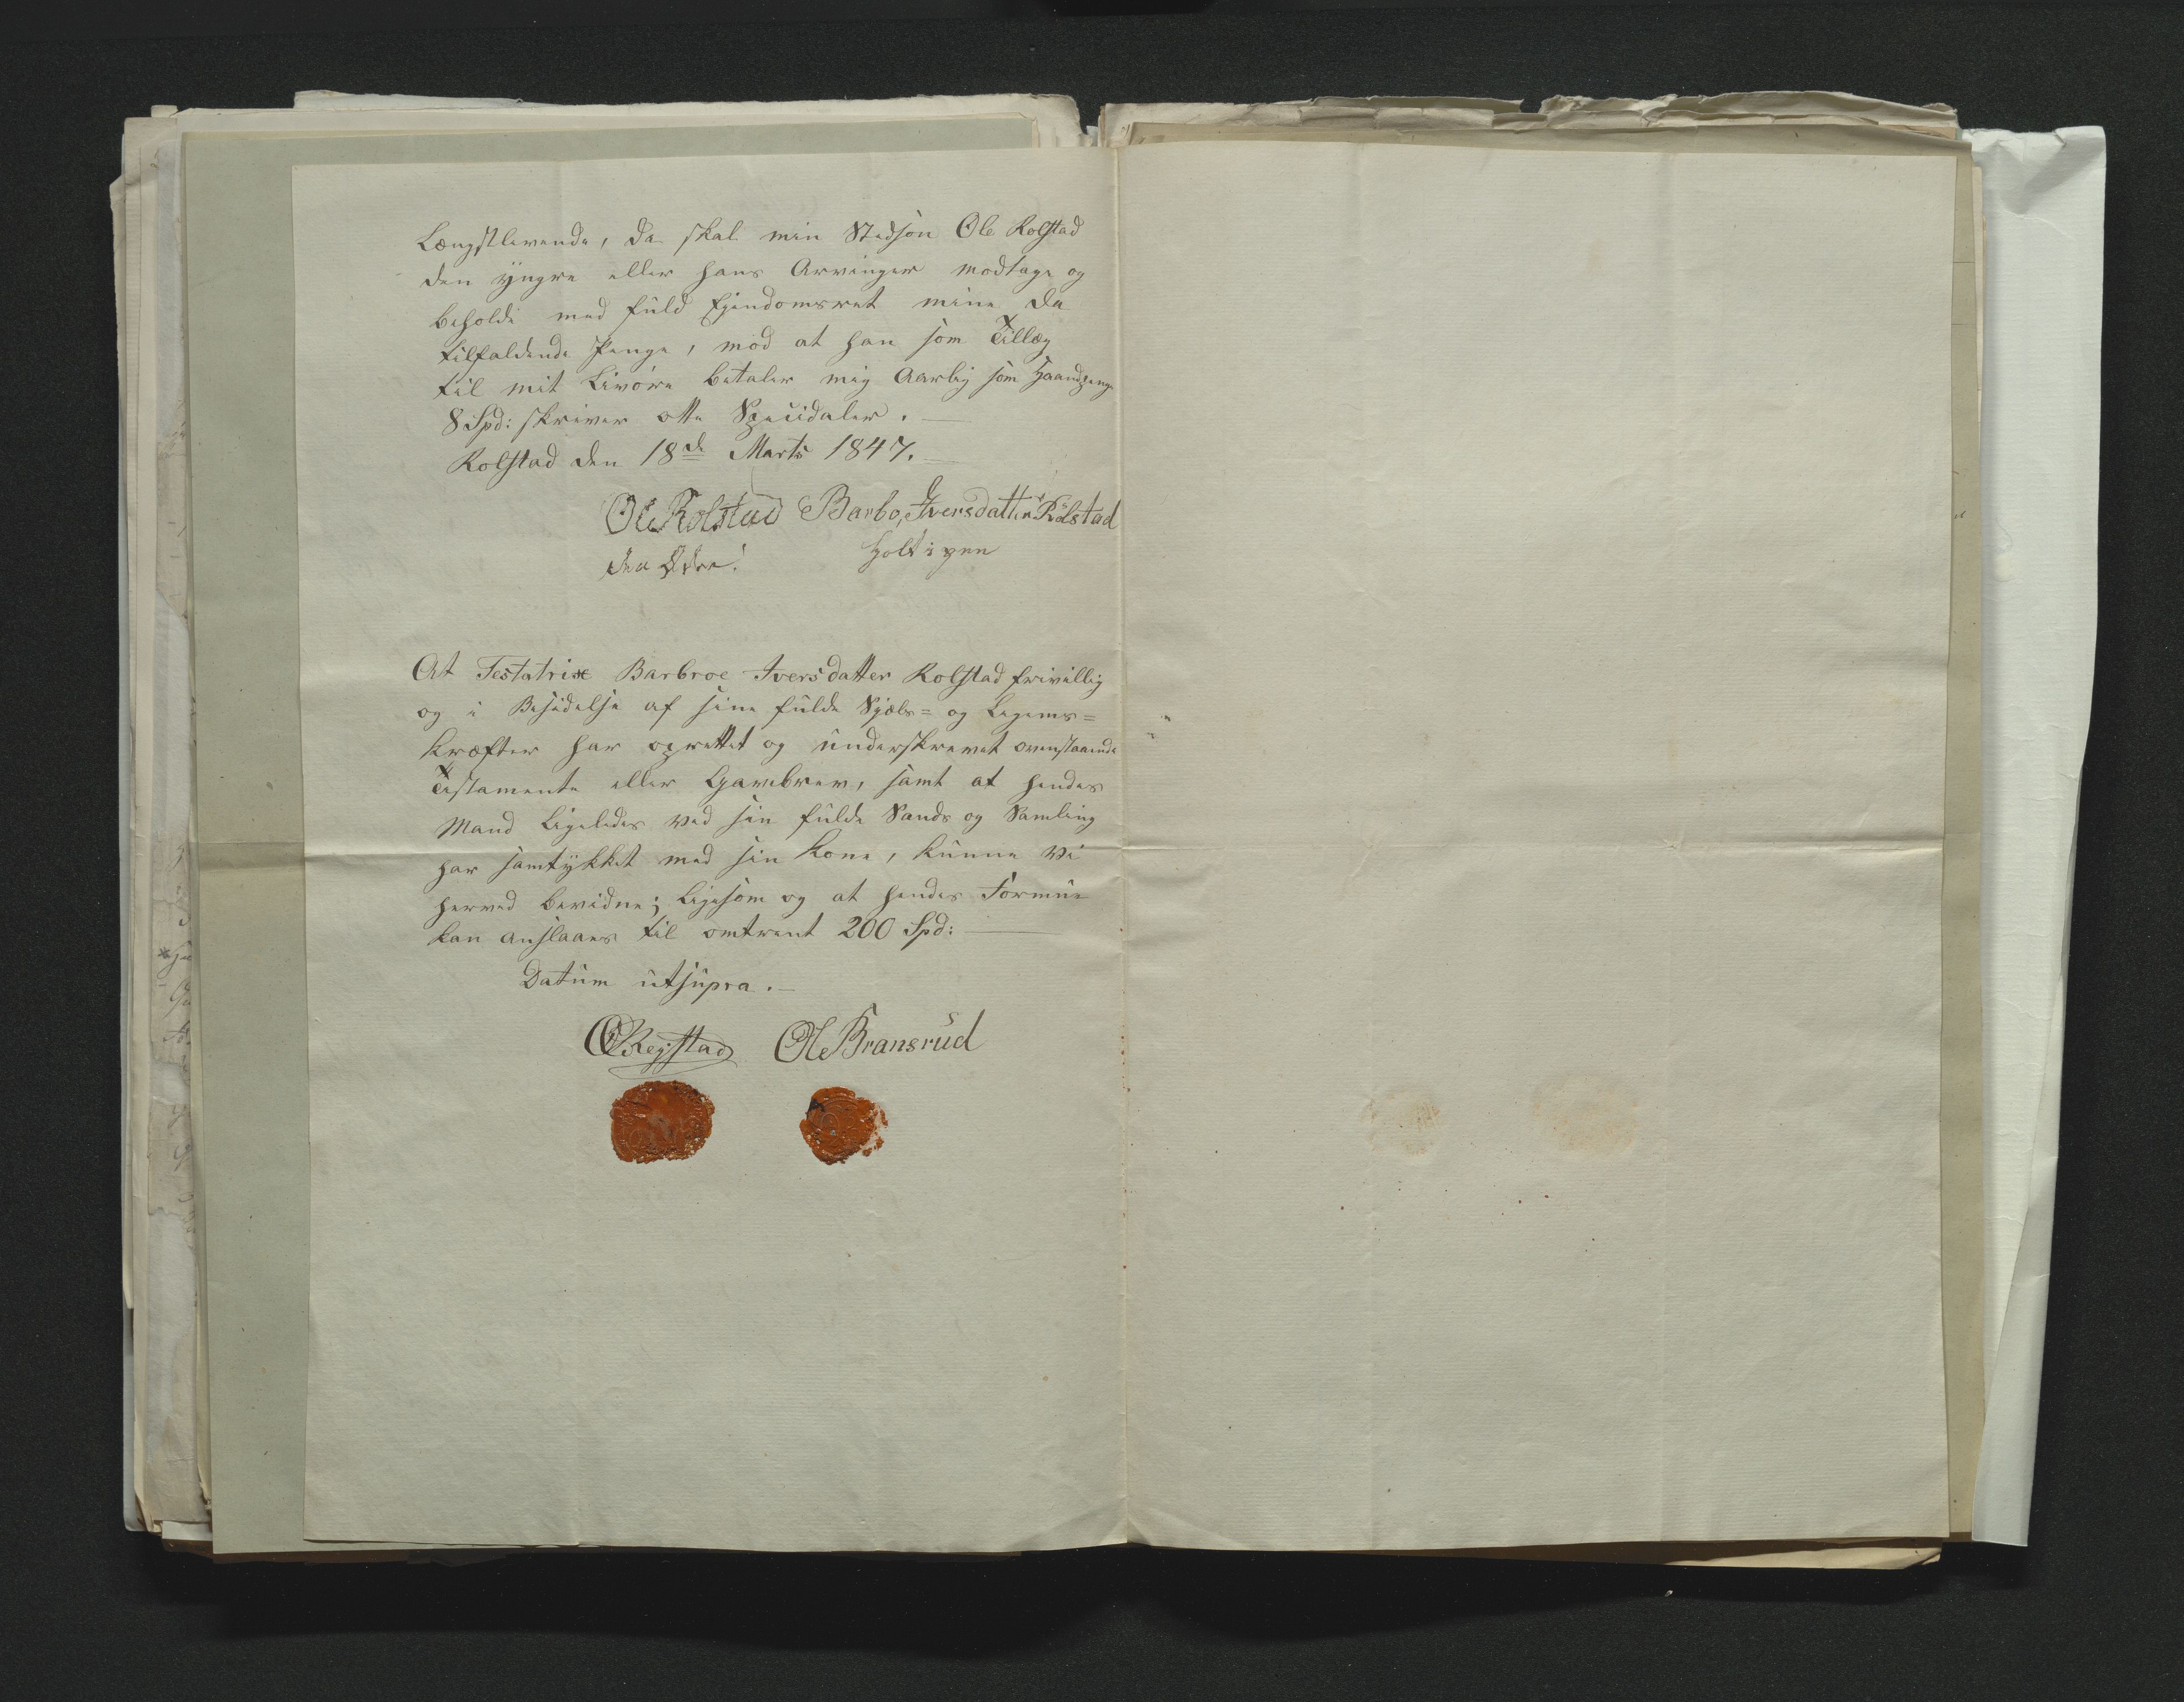 Længstlevende, da skal min Stedsøn Ole Kolstad
den yngre eller hans Arvinger modtage og
beholde med fuld Ejendomsret mine da
tilfaldende Penge, mod at han som Tillæg
til mit Livøre betaler mig Aarlig som Haandpenge
8 Spd: skriver otte Speciedaler.
Kolstad den 18de Marts 1847.
Ole Kolstad Barbo, Iversdatter Kolstad
den Eldre! holt i pen
At Testatrixe Barbroe Iversdatter Kolstad frivillig
og i Besidelse af sine fulde Sjæls= og Legems=
kræfter har oprettet og underskrevet ovenstaaende
Testamente eller Gavebrev, samt at hendes
Mand ligeledes ved sin fulde Sands og Samling
har samtykket med sin Kone, kunne vi
herved bevidne; ligesom og at hendes Formue
kan anslaaes til omtrent 200 Spd:
Datum utsupra.
Ole Bransrud